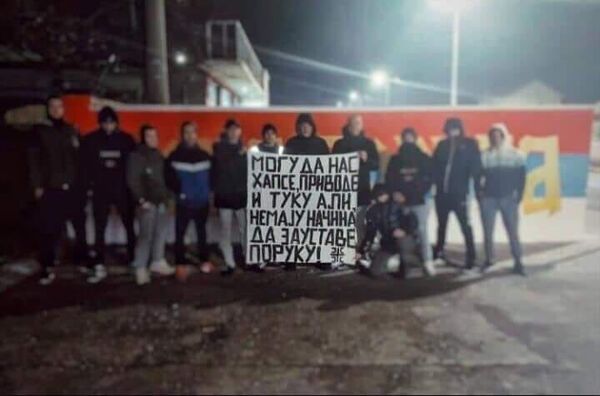 МОГУ ДА НАС
ХАПСЕ, ПРИВОДЕ
И ТУКУ АЛИ,
НЕМАЈУ НАЧИНА
ДА ЗАУСТАВЕ
ПОРУКУ!